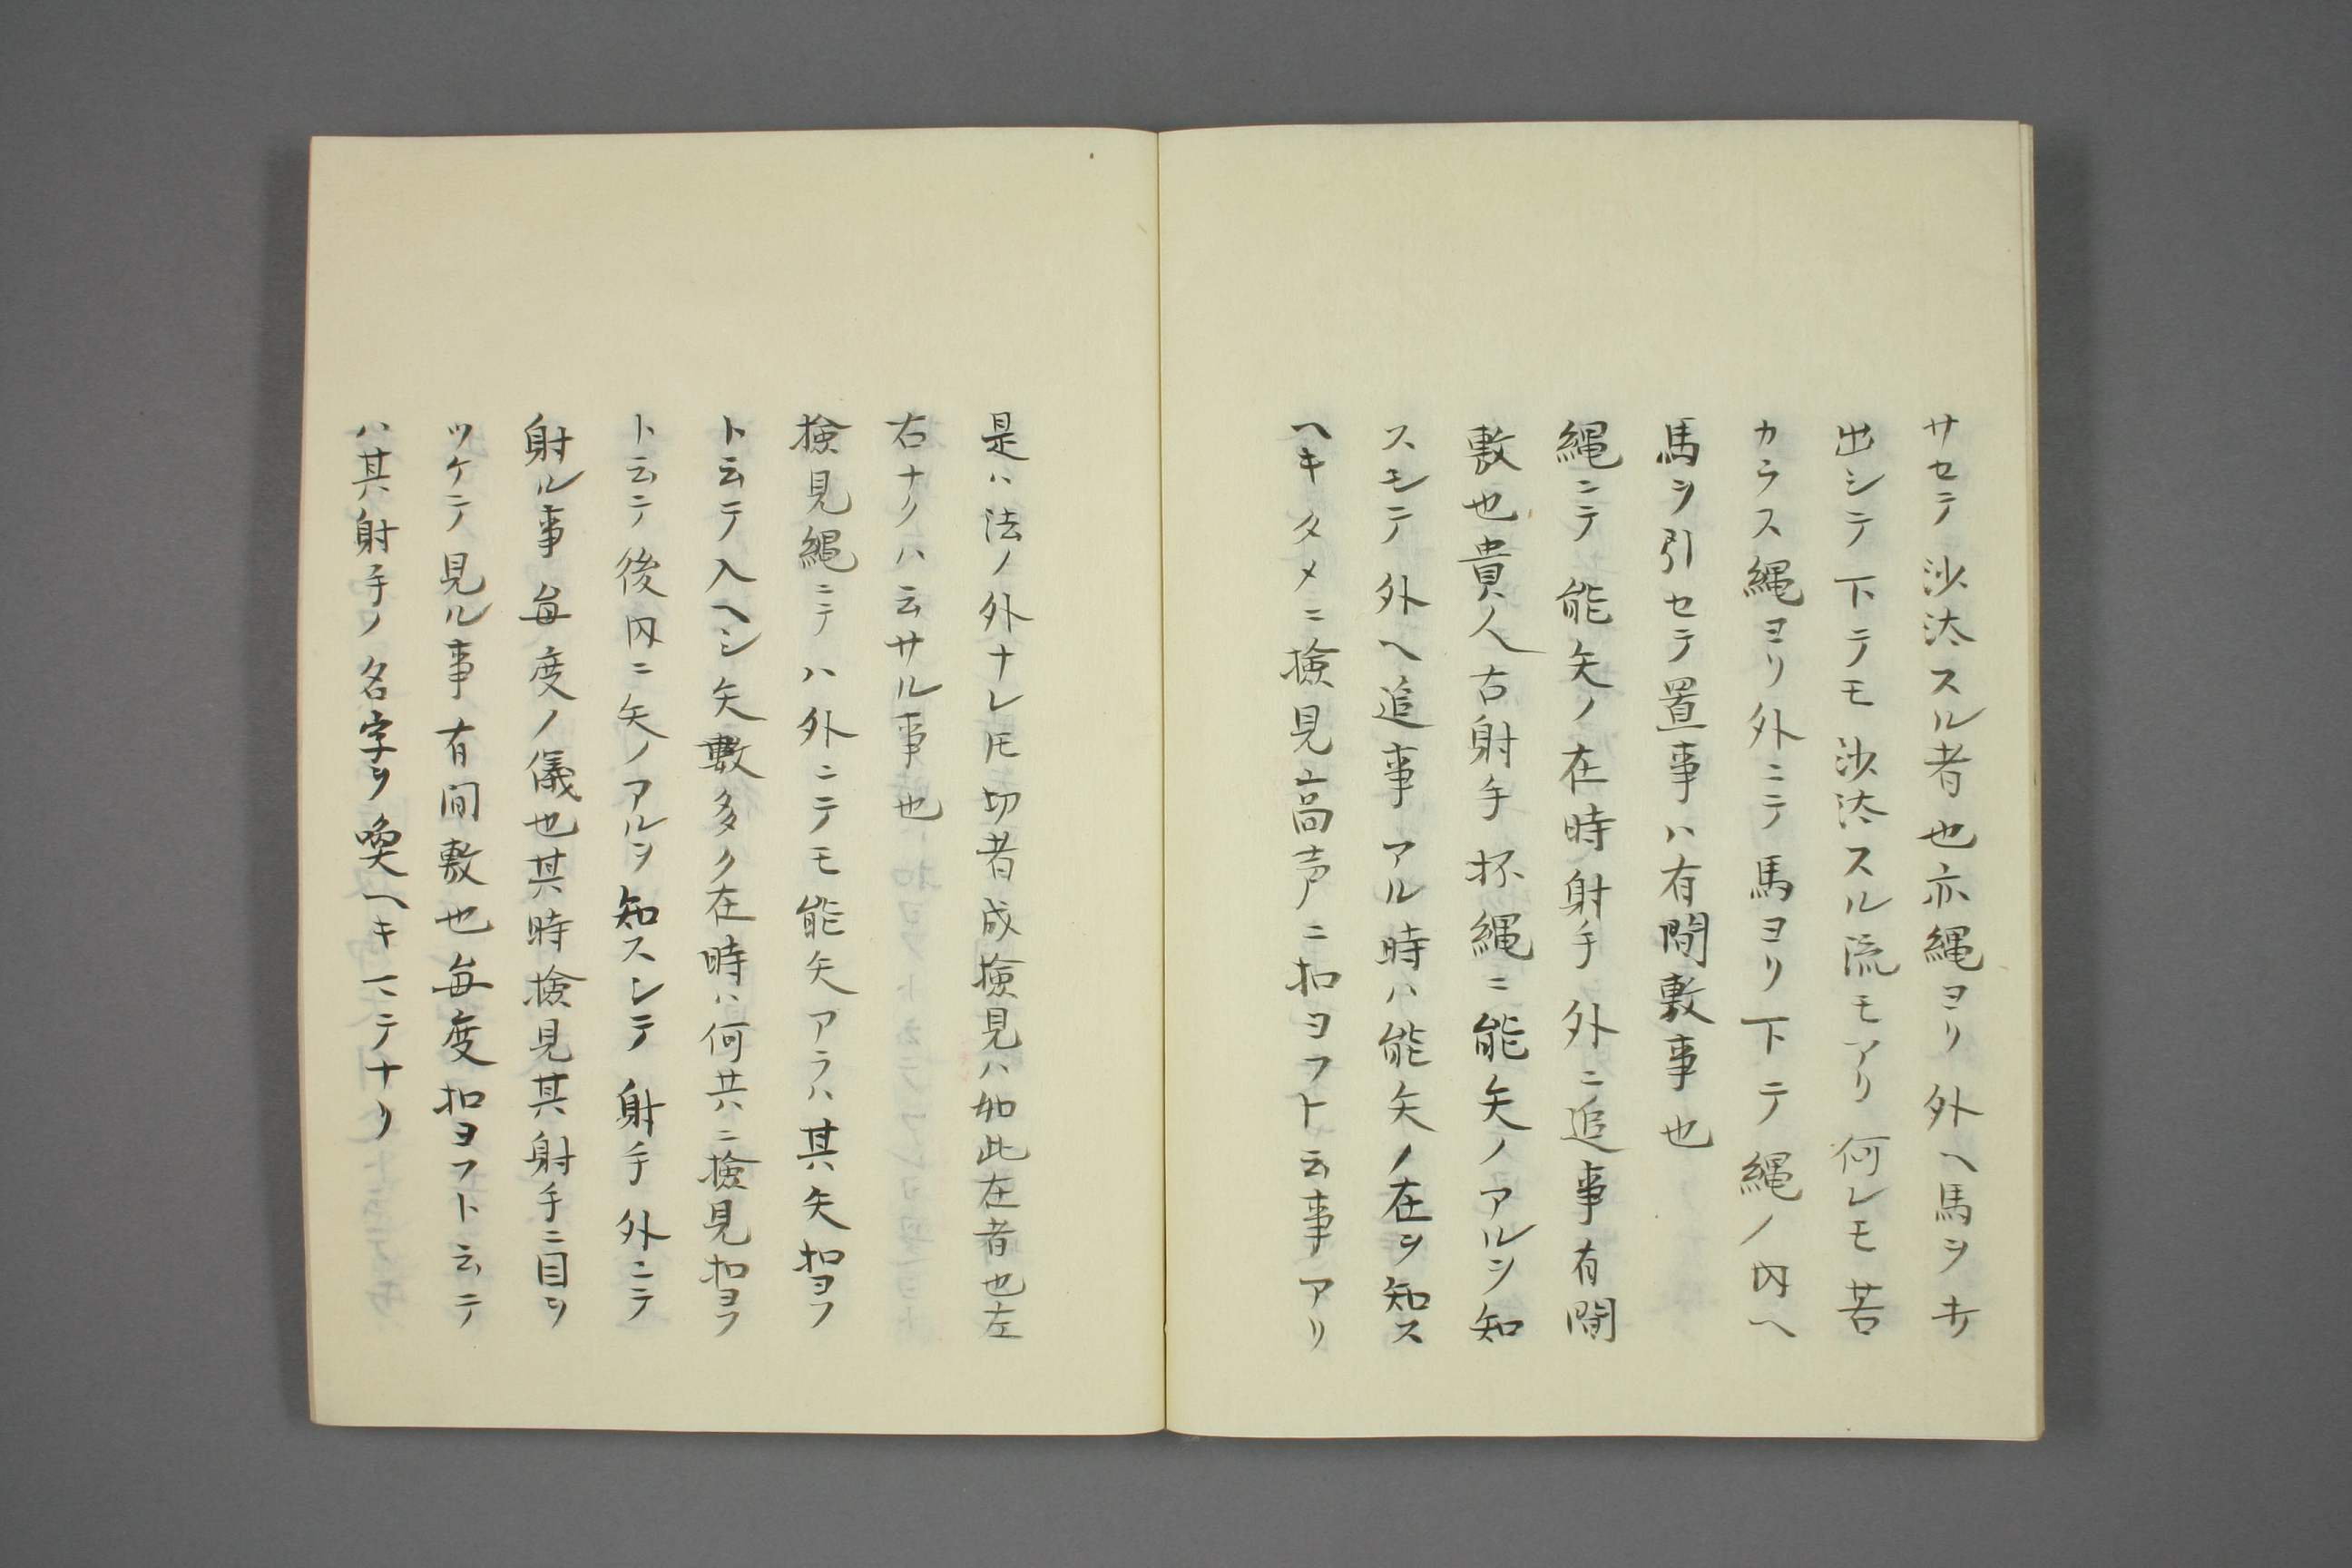 サセテ沙汰スル者也亦縄ヨリ外ヘ馬ヲ牽
出シテ下テモ沙汰スル流モアリ何レモ苦
カラス縄ヨリ外ニテ馬ヨリ下テ縄ノ内ヘ
馬ヲ引セテ置事ハ有間敷事也
縄ニテ能矢ノ在時射手外ニ追事有間
敷也貴人古射手抔縄ニ能矢ノアルヲ知
スモテ外ヘ追事アル時ハ能矢ノ在ヲ知ス
ヘキタメニ検見高声ニ扣ヨフト云事アリ
是ハ法ノ外ナレ𪜈切者成検見ハ如此在者也左
右ナクハ云サル事也
検見縄ニテハ外ニテモ能矢アラハ其矢扣ヨフ
ト云テ入ヘシ矢數多ク在時ハ何共ニ検見扣ヨフ
ト云テ後内ニ矢ノアルヲ知スシテ射手外ニテ
射ル事毎度ノ儀也其時検見其射手ニ目ヲ
ツケテ見ル事有間敷也毎度扣ヨフト云テ
ハ其射手ノ名字ヲ喚ヘキニテナリ